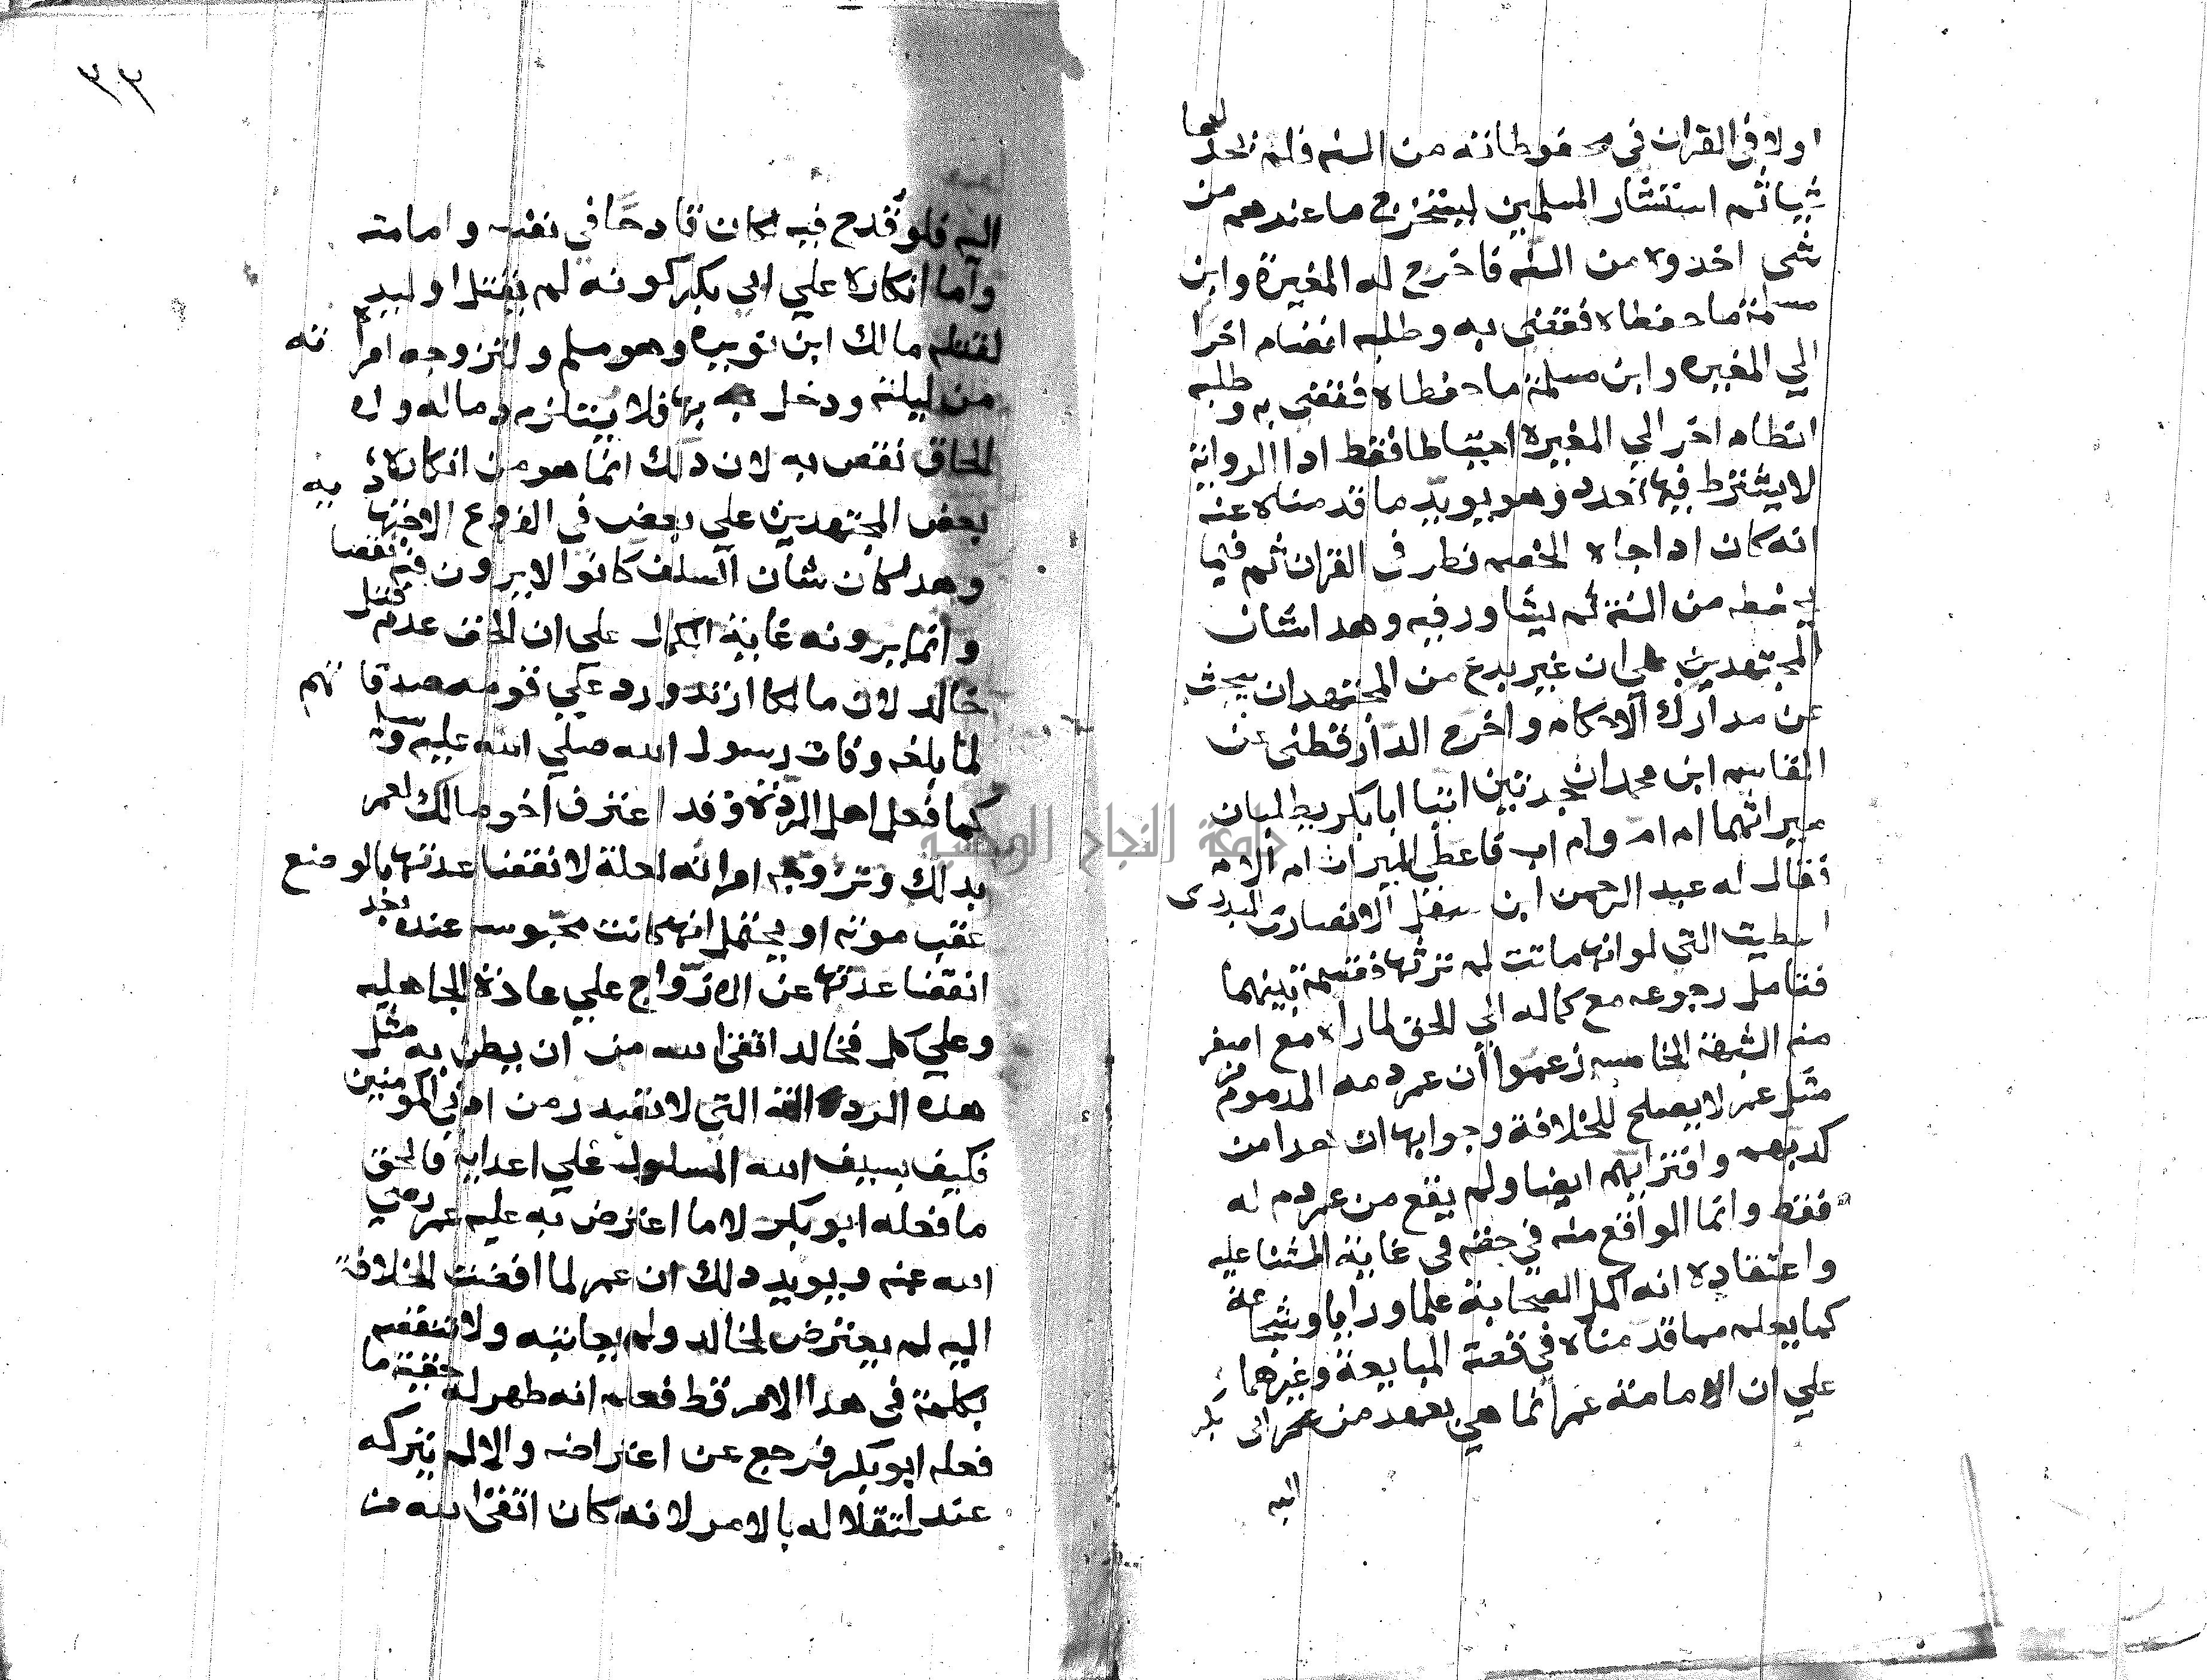 اولا في القران في محفوطاته من السنه فلم نجد لهما
شيا ثم استشار المسلمين ليستخرج ما عندهم من
شي اخذوه من السنه فاخرج له المغيرة وابن
مسلمة ما حفطاه فقضى به وطلبه انضمام اخرا
الي المغيره وابن مسلمة ما حفطاه فقضى به وطلبه
انطام اخر الي المغيره احتياطا فقط اد االرواية
لا يشترط فيها تعدد وهو يويد ما قدمناه عنه
انه كان ادا جاه الخصم نطر في القران ثم فيما
يحفطه من السنة ثم يشاور فيه وهدا شان
المجتهدين علي ان غير بدع من المجتهد ان يبحث
عن مدارك الاحكام واخرج الدارقطنى عن
القاسم ابن محمد ان جدتين اتتا ابا بكر يطلبان
ميراثهما ام ام وام اب فاعطي الميراث ام الام
فقال له عبد الرحمن ابن سهل الانصاري البدري
اعطيت التي لو انها ماتت لم ترثها فقسمة بينهما
فتامل رجوعه مع كماله الي الحق لما راه مع اصغر
منه الشبهة الخامسه زعموا ان عمر دمه المدموم من
مثل عمر لا يصلح للخلافة وجوابها ان هدا من
كدبهم وافترايهم ايضا ولم يقع من عمر دم له
فقط وانما الواقع منه في حقه في غاية الثنا عليه
واعتقاده انه اكمل الصحابة علما ورايا وشجاعة
كما يعلم مما قدمناه في قصة المبايعة وغيرهما
علي ان الامامة عمر انما هي بعهد من ابي بكر
اليه
اليه فلو قدح فيه لكان قادحا في نفسه وامامته
واما انكاره علي ابي بكر كونه لم يقتل اوليد
لقتله مالك ابن نويره وهو مسلم ولتزوجه امراته
من ليلته ودخل بها فلا يستلزم دماله ولا
الحاق نقص به لان دلك انما هو من انكار
بعض المجتهدين علي بعض في الفروع الاجتهادية
وهدا كان شان السلف كانوا لا يرون فيه نقصا
وانما يرونه غاية الكمال علي ان الحق عدم قتل
خالد لان مالكا ارتد ورد علي قومه صدقاتهم
لما بلغه وفات رسول الله صلي الله عليه وسلم
كما فعل اهل الردة وقد اعترف اخو مالك لعمر
بدلك وتزوجه امراته لعلة لانقضا عدتها بالوضع
عقب موته او يحتمل انها كانت محبوسه عنده بعد
انقضا عدتها عن الازواج علي عادة الجاهليه
وعلي كل فخالد اتقى لله من ان يطن به مثل
هده الردالة التي لا تصدر من ادني المومنين
فكيف بسيف الله المسلول علي اعدايه فالحق
ما فعله ابو بكر لا ما اعترض به عليه عمر رضي
الله عنه ويويد دلك ان عمر لما افضت الخلافة
اليه لم يعترض لخالد ولم يعاتبه ولا تنقصه
بكلمة في هدا الامر قط فعلم انه طهر له حقية ما
فعله ابو بكر فرجع عن اعتراضه والا لم يتركه
عند استقلاله بالامر لانه كان اتقى لله من
٣٣
جامعة النجاح الوطنية